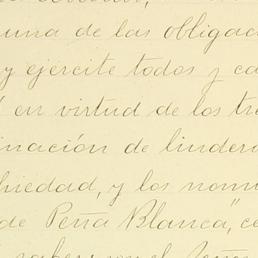 una de las obligac
y ejercite todos y ca
en virtud de los tr
inación de linder
piedad, y los nom
de Peña Blanca", ce